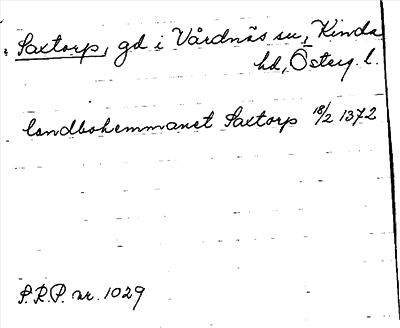 Saxtorp, gd i Vårdnäs sn, Kinda
hd, Österg. l.
landbohemmanet Saxtorp 18/2 1372
S.R.P. nr. 1029